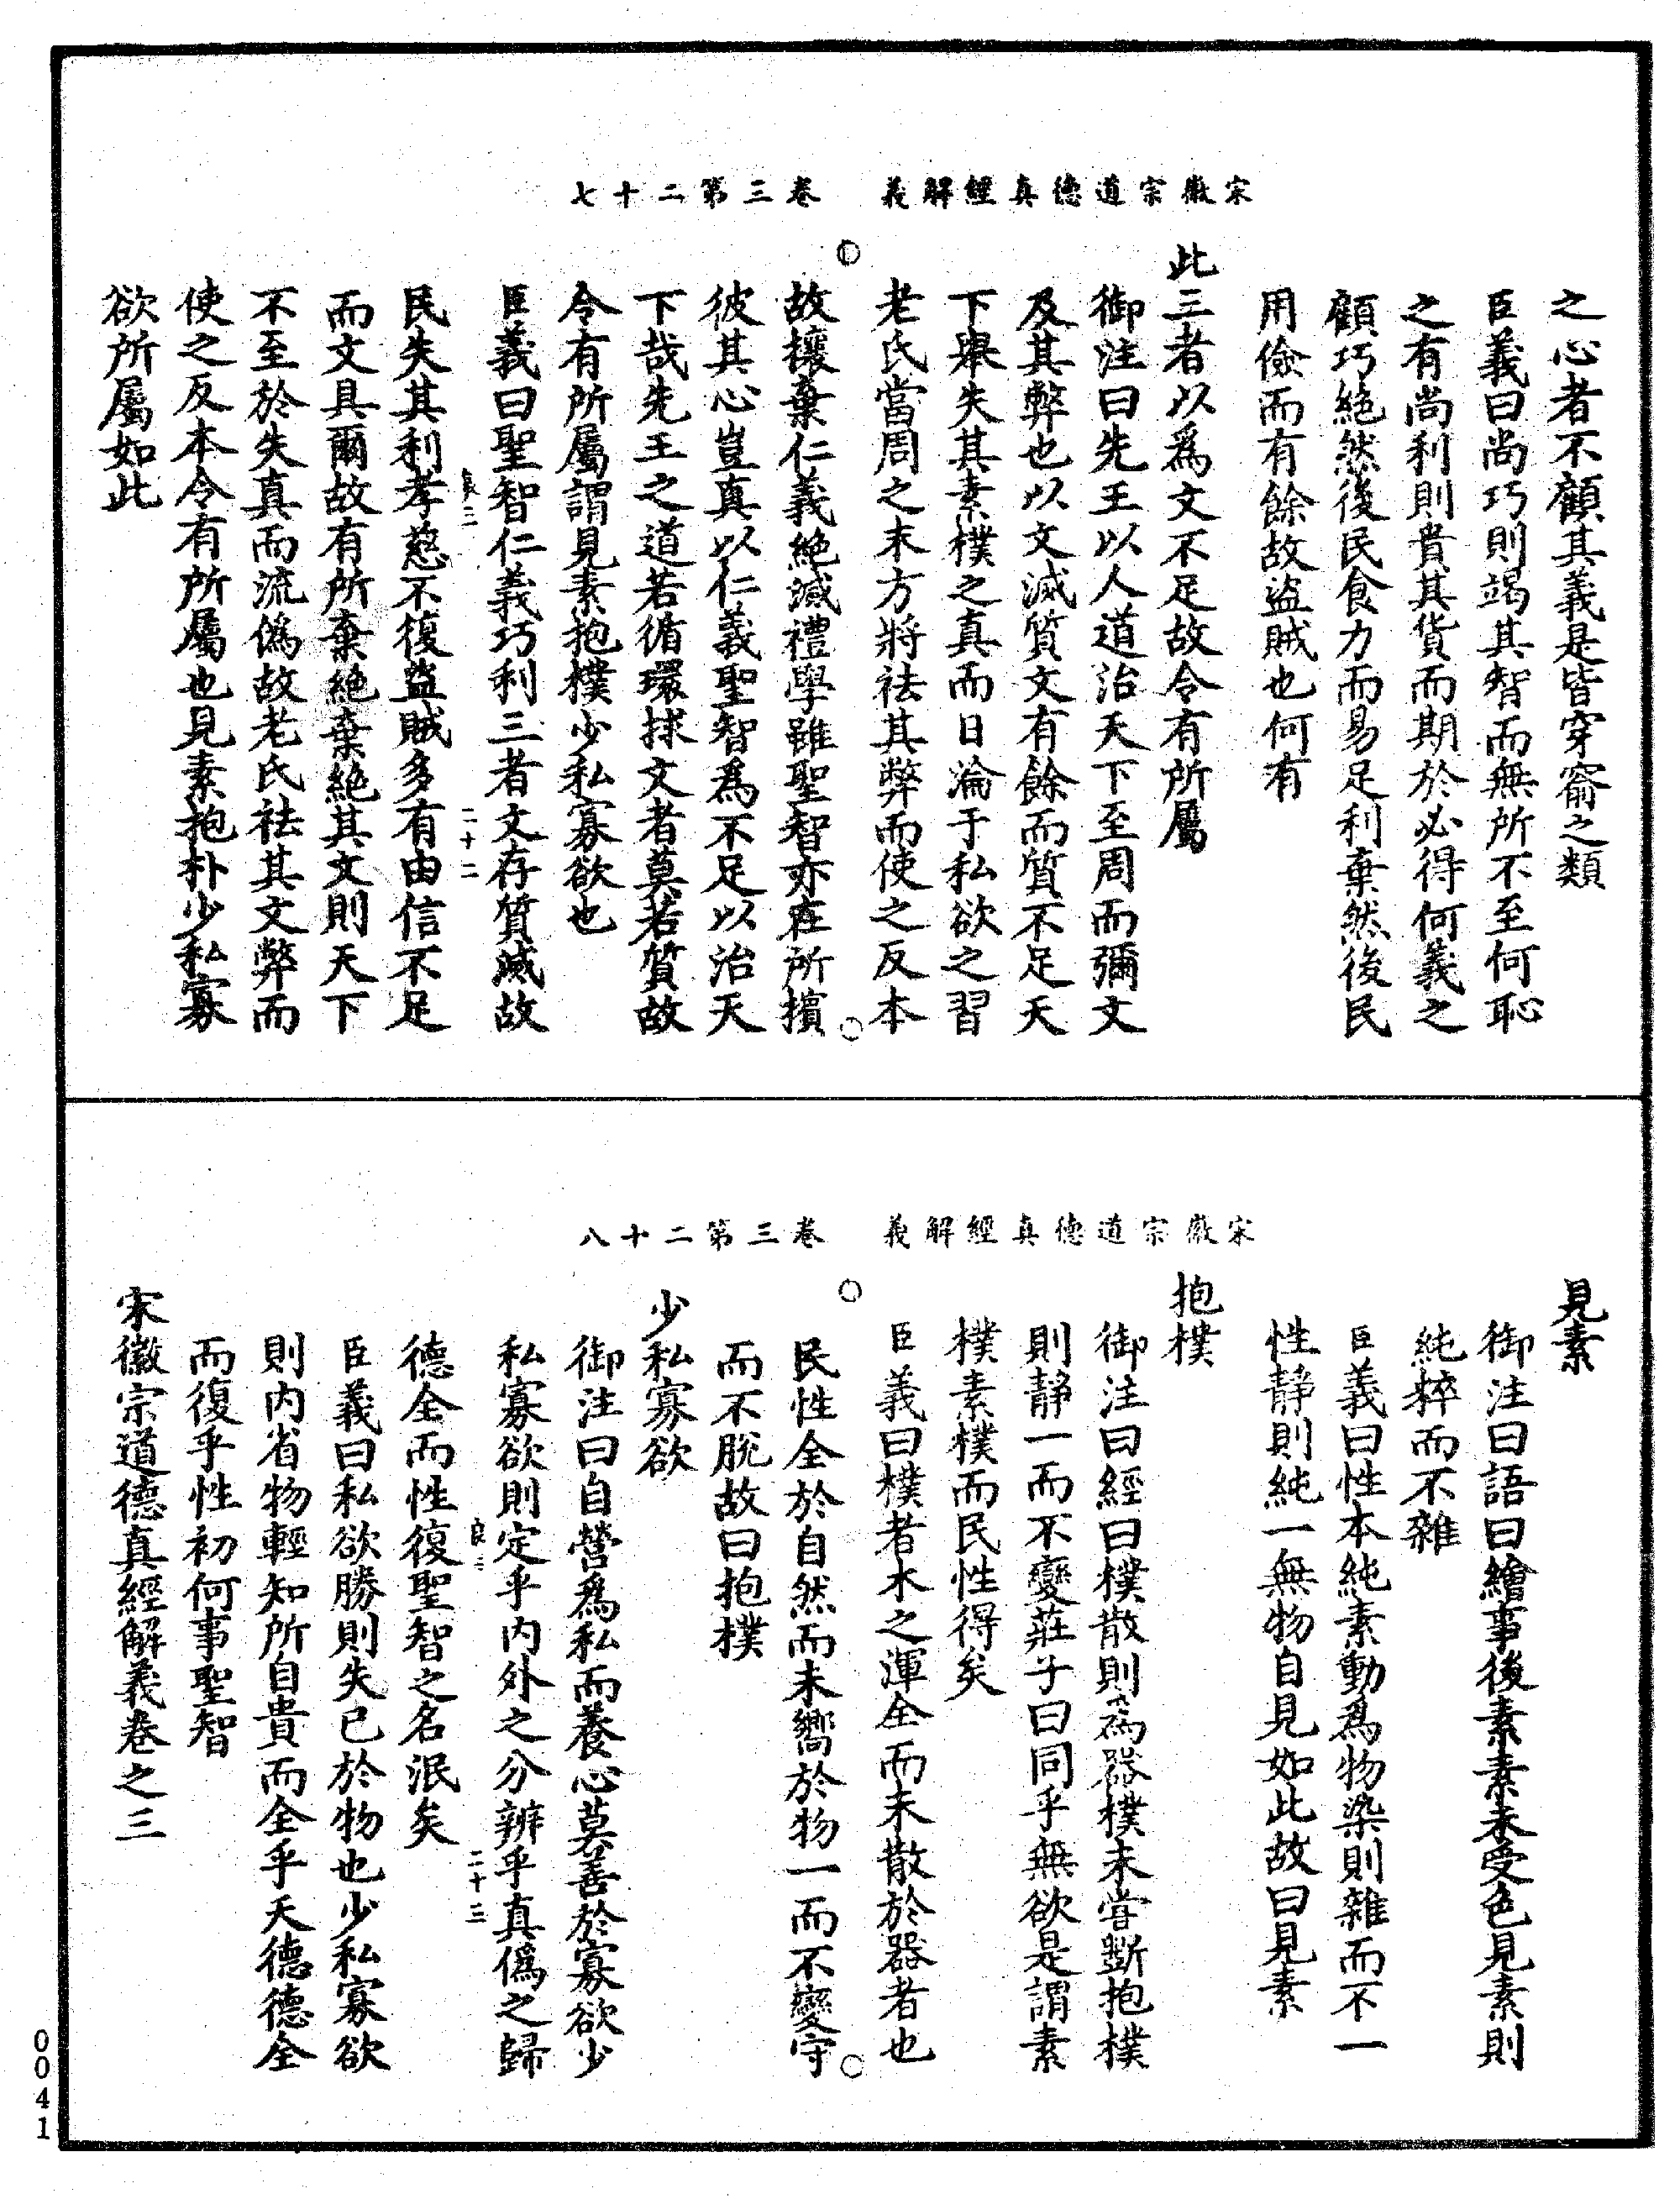 宋徽宗道德真經解義　卷三第二十七
之心者不顧其義是皆穿窬之類
臣義曰尚巧則竭其智而無所不至何恥
之有尚利則貴其貨而期於必得何義之
顧巧絕然後民食力而易足利棄然後民
用儉而有餘故盜賊也何有
此三者以爲文不足故令有所屬
御注曰先王以人道治天下至周而彌文
及其弊也以文滅質文有餘而質不足天
下舉失其素樸之真而日淪于私欲之習
老氏當周之末方將祛其弊而使之反本
故攘棄仁義絕滅禮學雖聖智亦在所擯
彼其心豈真以仁義聖智爲不足以治天
下哉先王之道若循環捄文者莫若質故
令有所屬謂見素抱樸少私寡欲也
臣義曰聖智仁義巧利三者文存質滅故
良三　二十二
民失其利孝慈不復盜賊多有由信不足
而文具爾故有所棄絕棄絕其文則天下
不至於失真而流僞故老氏祛其文弊而
使之反本令有所屬也見素抱朴少私寡
欲所屬如此
宋徽宗道德真經解義　卷三第二十八
見素
御注曰語曰繪事後素素未受色見素則
純粹而不雜
臣義曰性本純素動爲物染則雜而不一
性靜則純一無物自見如此故曰見素
抱樸
御注曰經曰樸散則爲器樸未嘗斷抱樸
則靜一而不變莊子曰同乎無欲是謂素
樸素樸而民性得矣
臣義曰樸者木之渾全而未散於器者也
民性全於自然而未嚮於物一而不變守
而不脫故曰抱樸
少私寡欲
御注曰自營爲私而養心莫善於寡欲少
私寡欲則定乎內外之分辨乎真僞之歸
良三　二十三
德全而性復聖智之名泯矣
臣義曰私欲勝則失已於物也少私寡欲
則內省物輕知所自貴而全乎天德德全
而復乎性初何事聖智
宋徽宗道德真經解義卷之三
0041